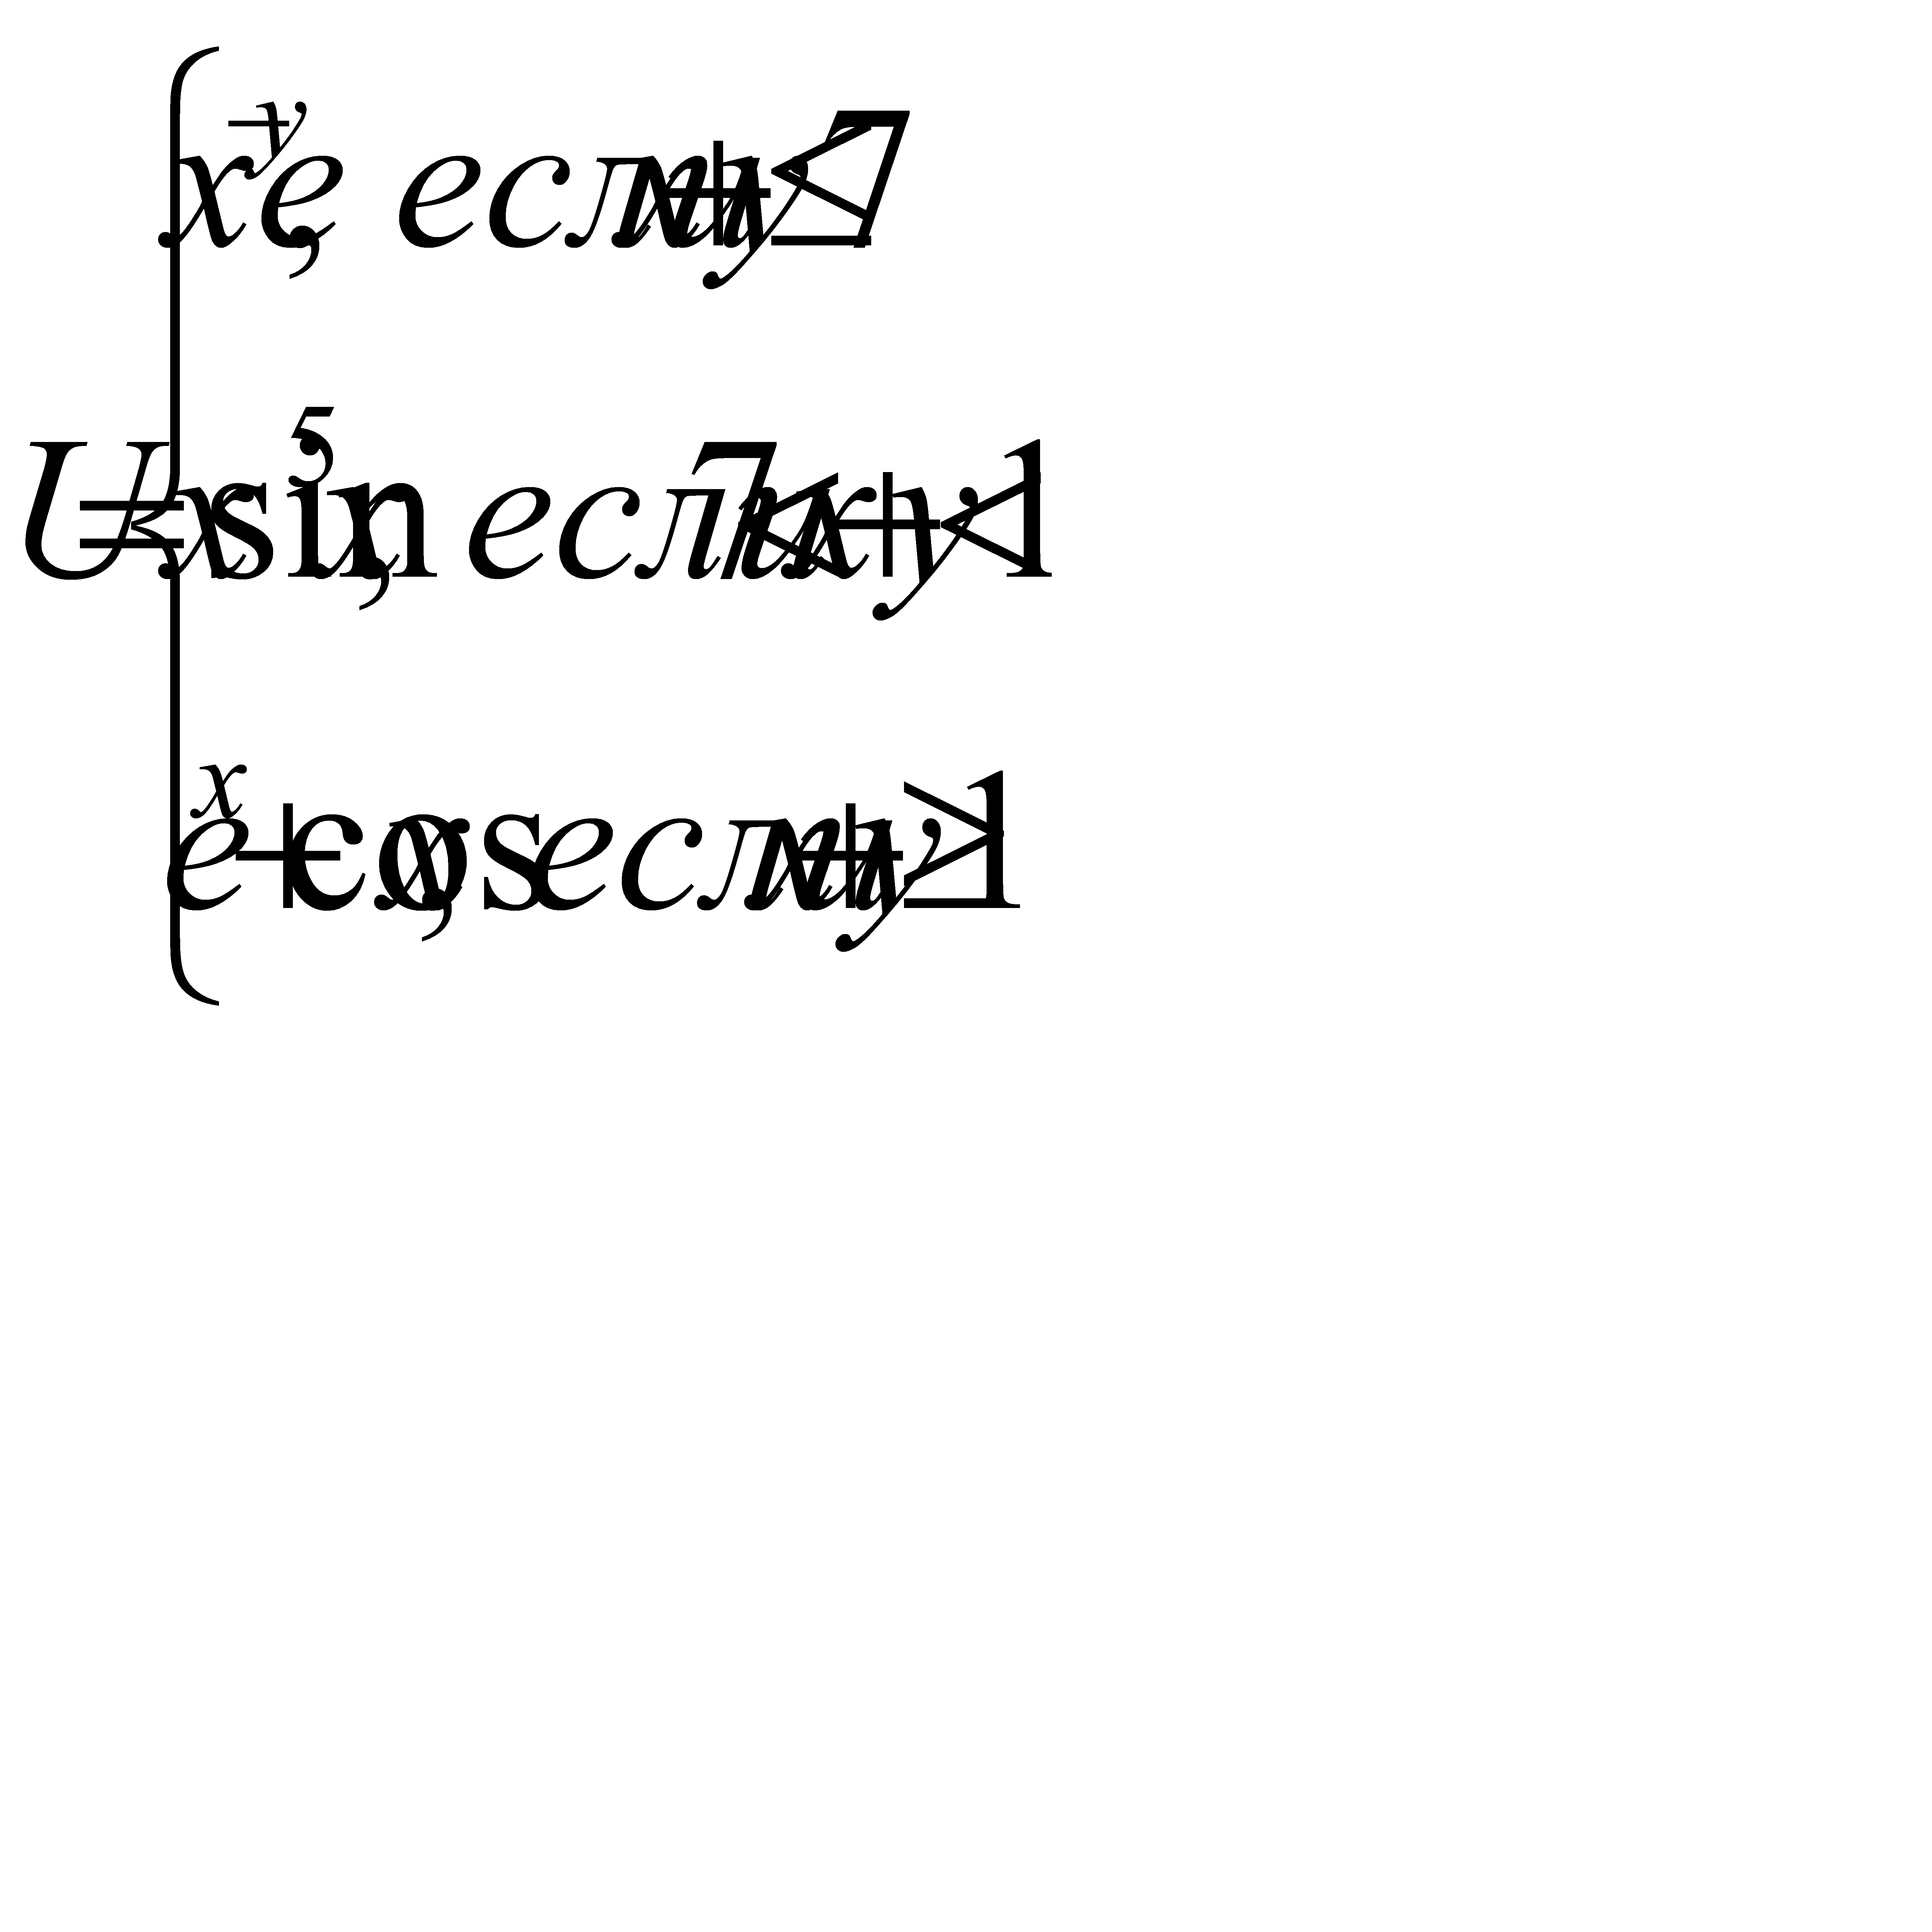 xe^{-y}, если x+y≤7
U = { x sin^5 x, если 7<x+y<1
e^x + cos x, если x+y≥1